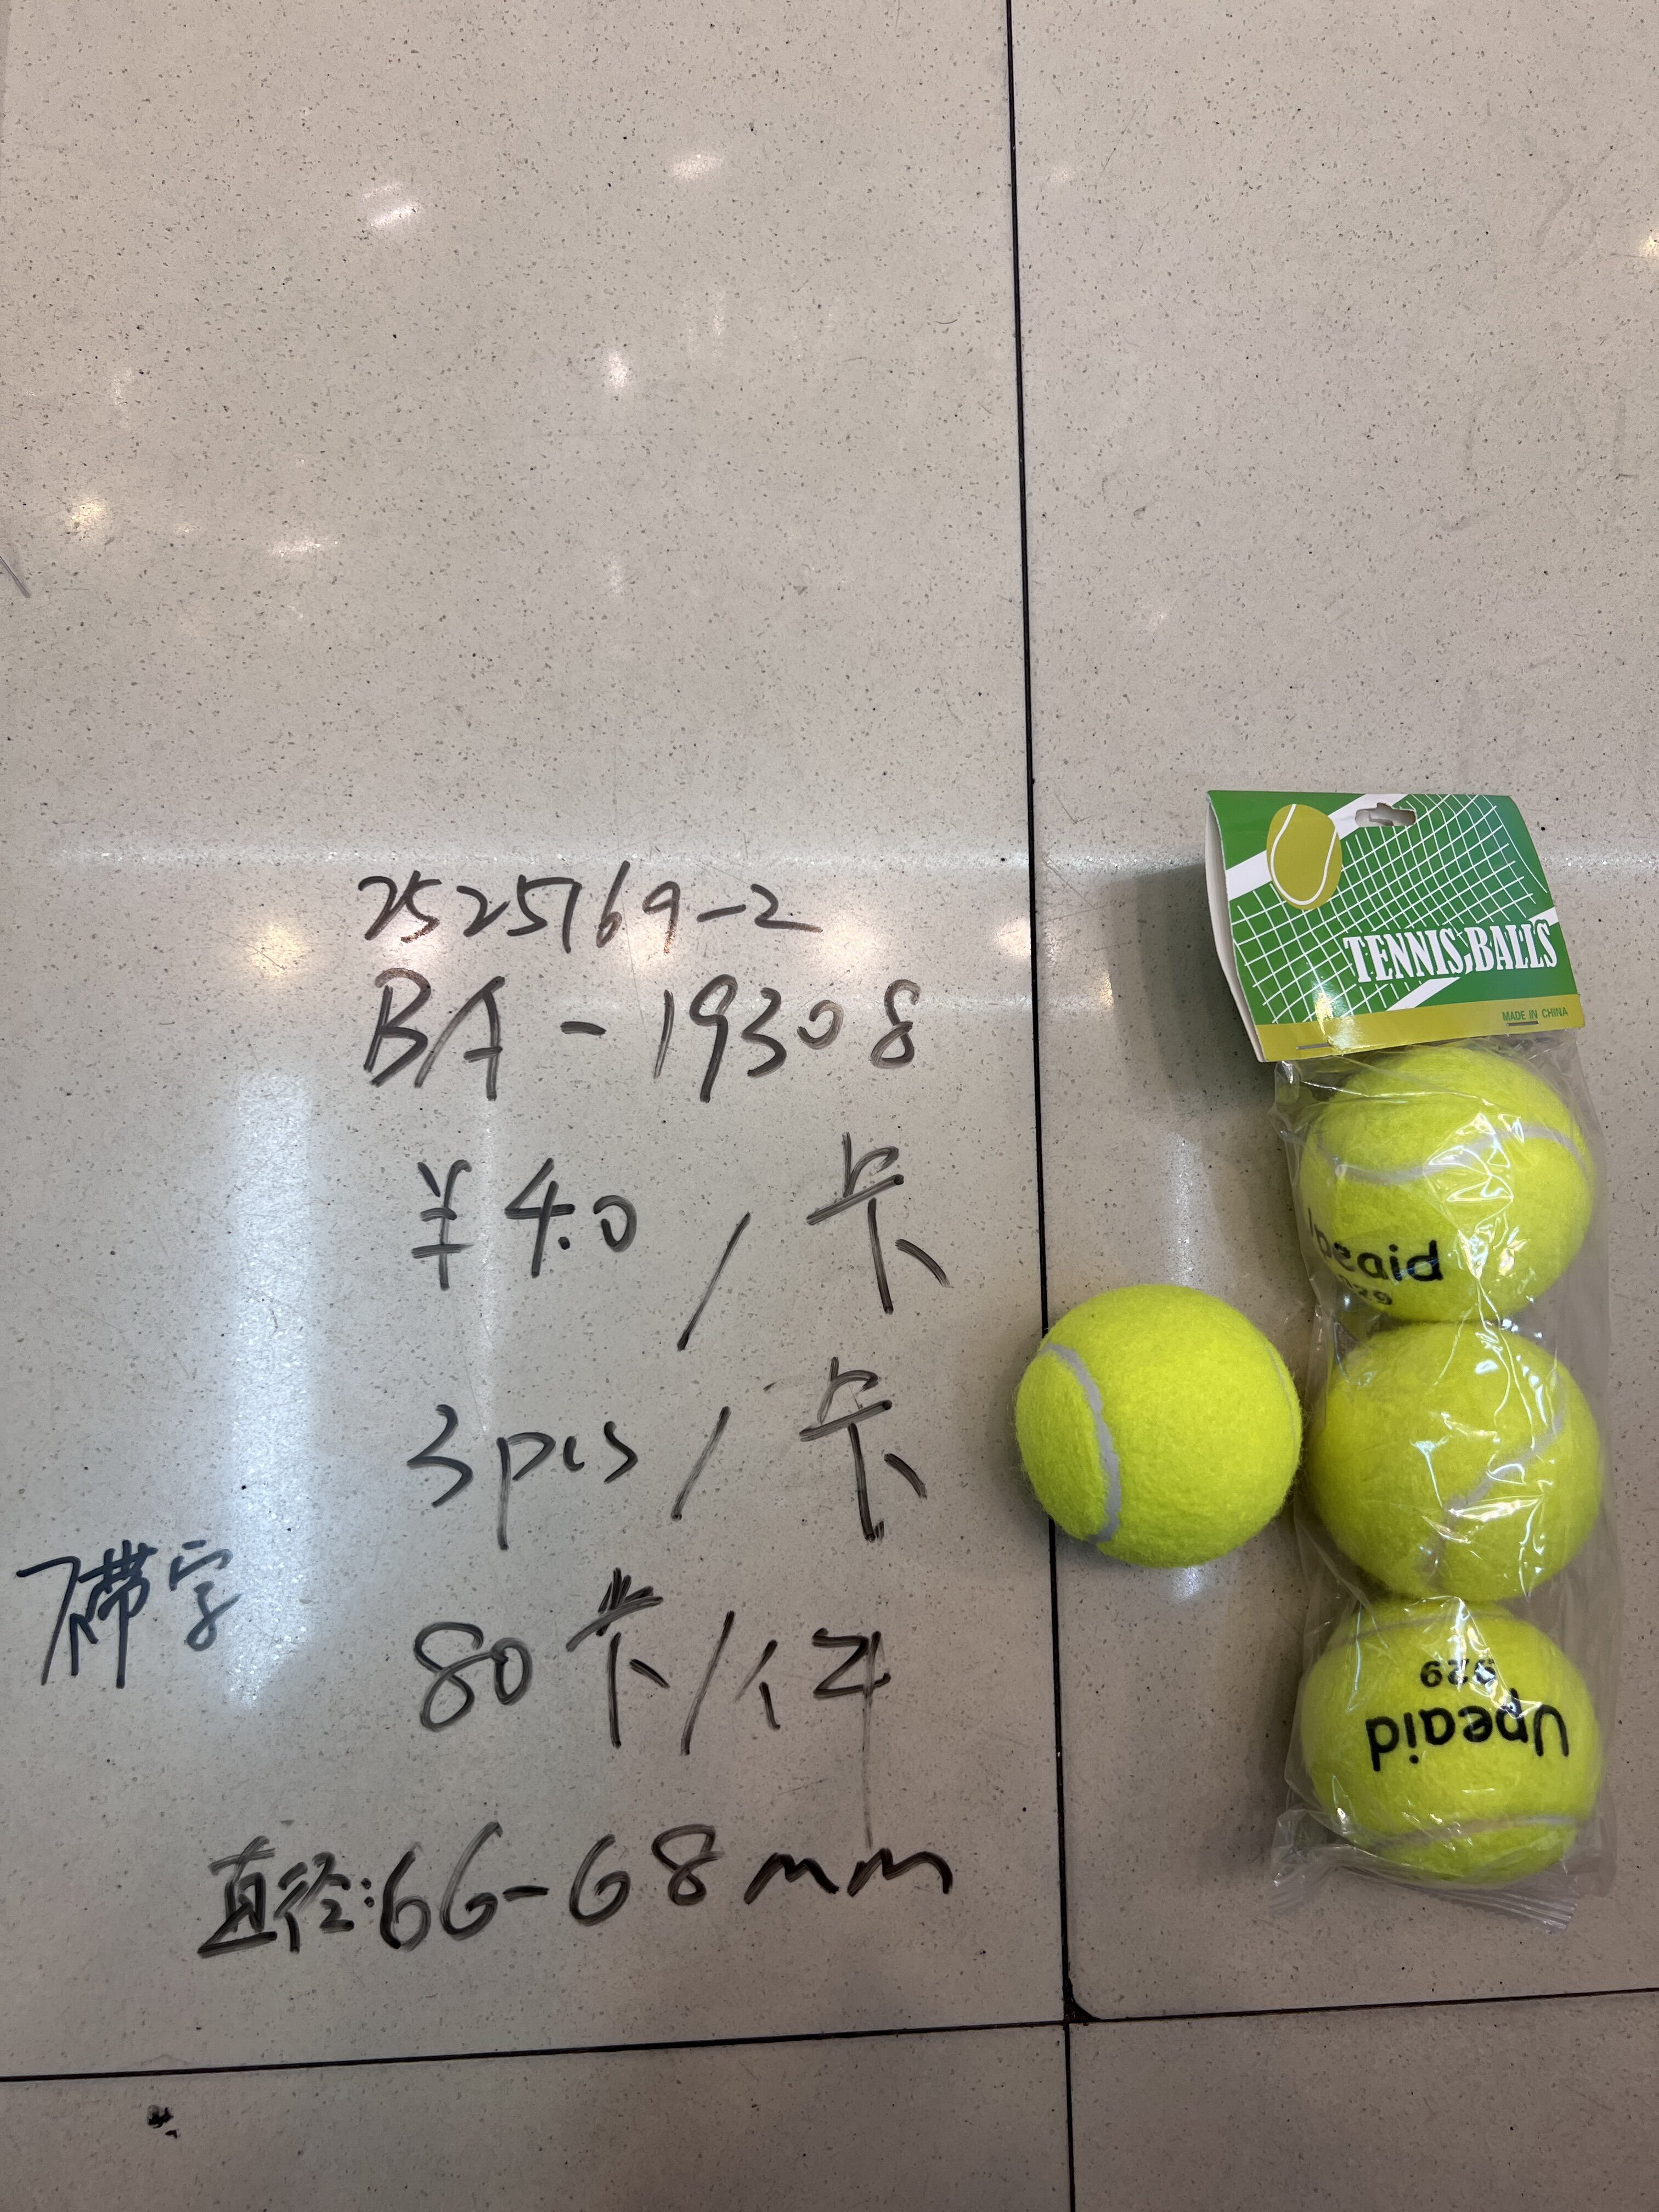 2525769-2
BA-19308
¥4.0/卡
3pcs/卡
不带字
80卡/件
直径:66-68mm
TENNIS BALLS
MADE IN CHINA
Upeaid
929